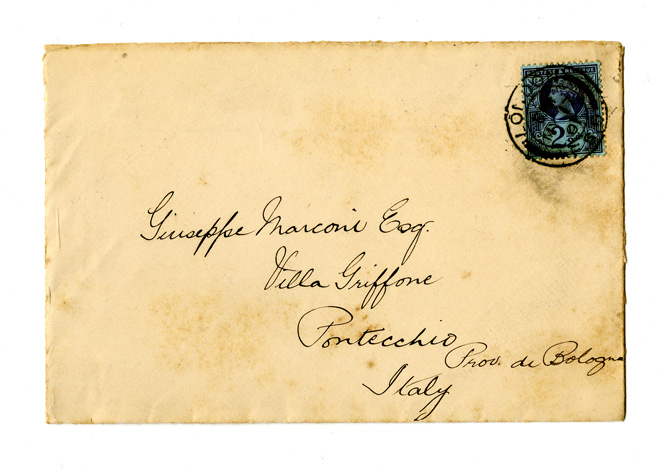 POSTAGE & REVENUE
2½
Giuseppe Marconi Esq.
Villa Griffone
Pontecchio
Prov. di Bologna
Italy